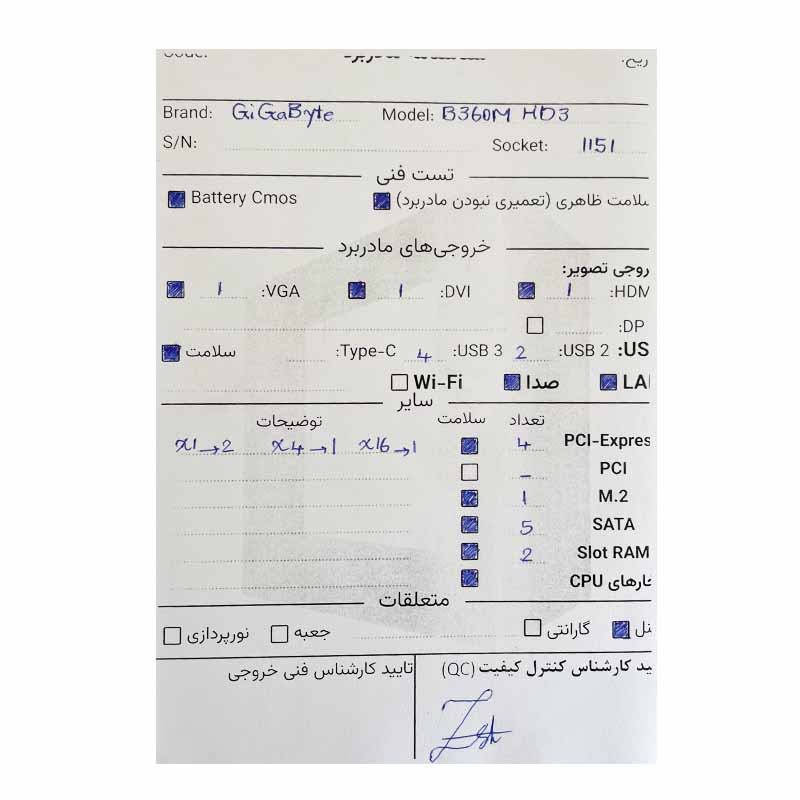 Brand: GiGaByte Model: B360M HD3
S/N: Socket: 1151
تست فنی
سلامت ظاهری (تعمیری نبودن مادربرد) Battery Cmos
خروجی‌های مادربرد
خروجی تصویر:
HDM: 1 DVI: 1 VGA: 1
DP:
US: USB 2: 2 USB 3: 4 Type-C: سلامت
LA صدا Wi-Fi
سایر
تعداد سلامت توضیحات
PCI-Expres 4 x16→1 x4→1 x1→2
PCI –
M.2 1
SATA 5
Slot RAM 2
خارهای CPU
متعلقات
پنل گارانتی جعبه نورپردازی
یید کارشناس کنترل کیفیت (QC) تایید کارشناس فنی خروجی